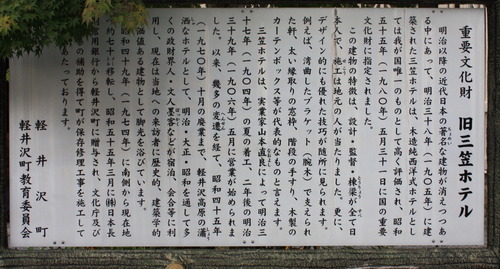 重要文化財 旧三笠ホテル
明治以降の近代日本の著名な建物が消えつつあ
る中にあって、明治三十八年(一九〇五年)に建
築された三笠ホテルは、木造純西洋式ホテルとし
ては我が国唯一のものとして高く評価され、昭和
五十五年(一九八〇年)五月三十一日に国の重要
文化財に指定されました。
この建物の特徴は、設計・監督・棟梁が全て日
本人で、施工は地元の人が当たりました。更に、
デザイン的にも優れた技巧が随所に見られます。
例えば、湾曲したブラケット(腕木)で支えられ
た軒、太い縁取りの窓枠、階段の手すり、木製の
カーテンボックス等が代表的なものと言えます。
三笠ホテルは、実業家山本直良によって明治三
十七年(一九〇四年)の夏の着工、二年後の明治
三十九年(一九〇六年)五月に営業が始められま
した。以来、幾多の変遷を経て、昭和四十五年
(一九七〇年)十月の廃業まで、軽井沢高原の瀟
洒なホテルとして、明治・大正・昭和を通して多
くの政財界人・文人墨客などが宿泊、会合等に利
用し、現在は当地への来訪者に歴史的、建築学的
価値ある建物として脚光を浴びています。
昭和四十九年(一九七四年)に南側から現在地
へ約七十移転し、昭和五十五年三月に(株)日本長
期信用銀行から軽井沢町に贈与され、文化庁及び
の補助を得て町が保存修理工事を施工して
あたっております。
軽井沢町
軽井沢町教育委員会